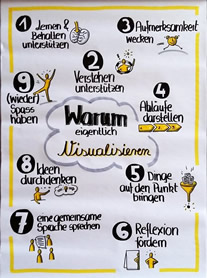 1 Lernen &
Behalten
unterstützen
3 Aufmerksamkeit
wecken
2
Verstehen
unterstützen
9
(wieder)
Spass
haben
4
Abläufe
darstellen
Warum
eigentlich
Visualisieren
8 Ideen
durchdenken
5 Dinge
auf den Punkt
bringen
7 eine gemeinsame
Sprache sprechen
6 Reflexion
fördern